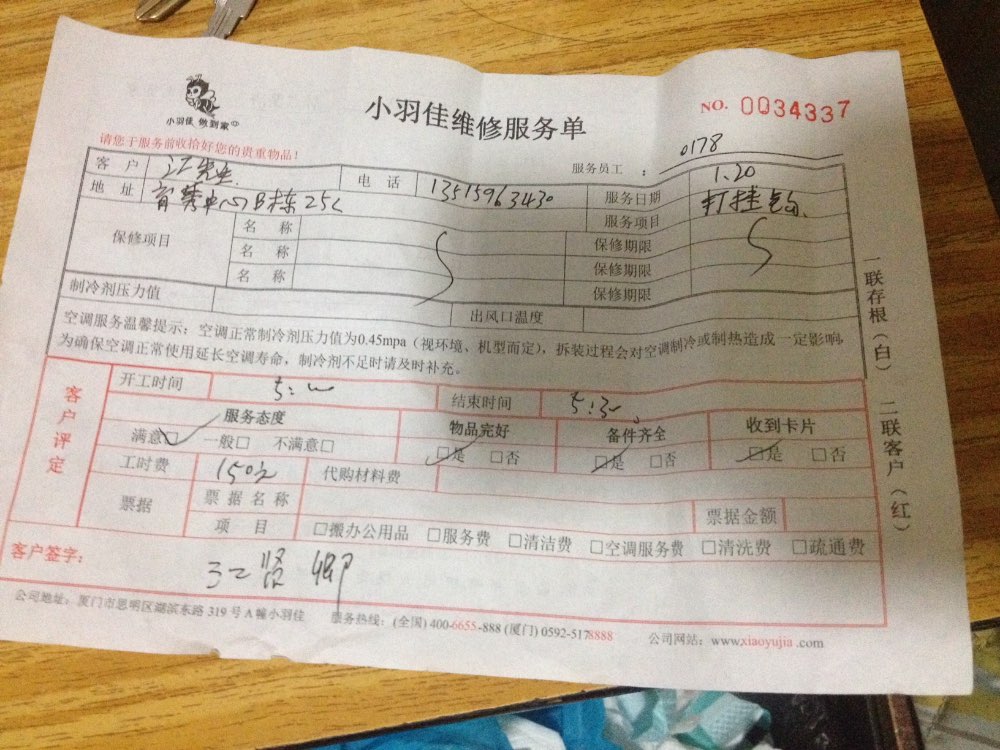 小羽佳 做到家
小羽佳维修服务单
NO. 0034337
请您于服务前收拾好您的贵重物品!
服务员工 : 0178
客 户 江先生 电 话 13515963430 服务日期 1.20
地 址 育秀中心B栋25C 服务项目 打挂
保修项目 名 称 保修期限
名 称 保修期限
名 称 保修期限
制冷剂压力值 出风口温度
空调服务温馨提示:空调正常制冷剂压力值为0.45mpa(视环境、机型而定),拆装过程会对空调制冷或制热造成一定影响,
为确保空调正常使用延长空调寿命,制冷剂不足时请及时补充。
客户评定
开工时间 5:00 结束时间 5:30
服务态度 物品完好 备件齐全 收到卡片
满意□ 一般□ 不满意□ □是 □否 □是 □否 □是 □否
工时费 150元 代购材料费
票据 票 据 名 称 票据金额
项 目 □搬办公用品 □服务费 □清洁费 □空调服务费 □清洗费 □疏通费
客户签字:
公司地址:厦门市思明区湖滨东路 319 号 A 幢小羽佳 服务热线:(全国) 400-6655-888 (厦门) 0592-5178888 公司网站:www.xiaoyujia.com
一联存根(白) 二联客户(红)